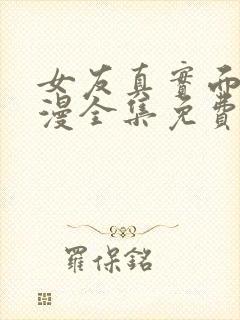 女友真實而
漫全集免費
羅保銘